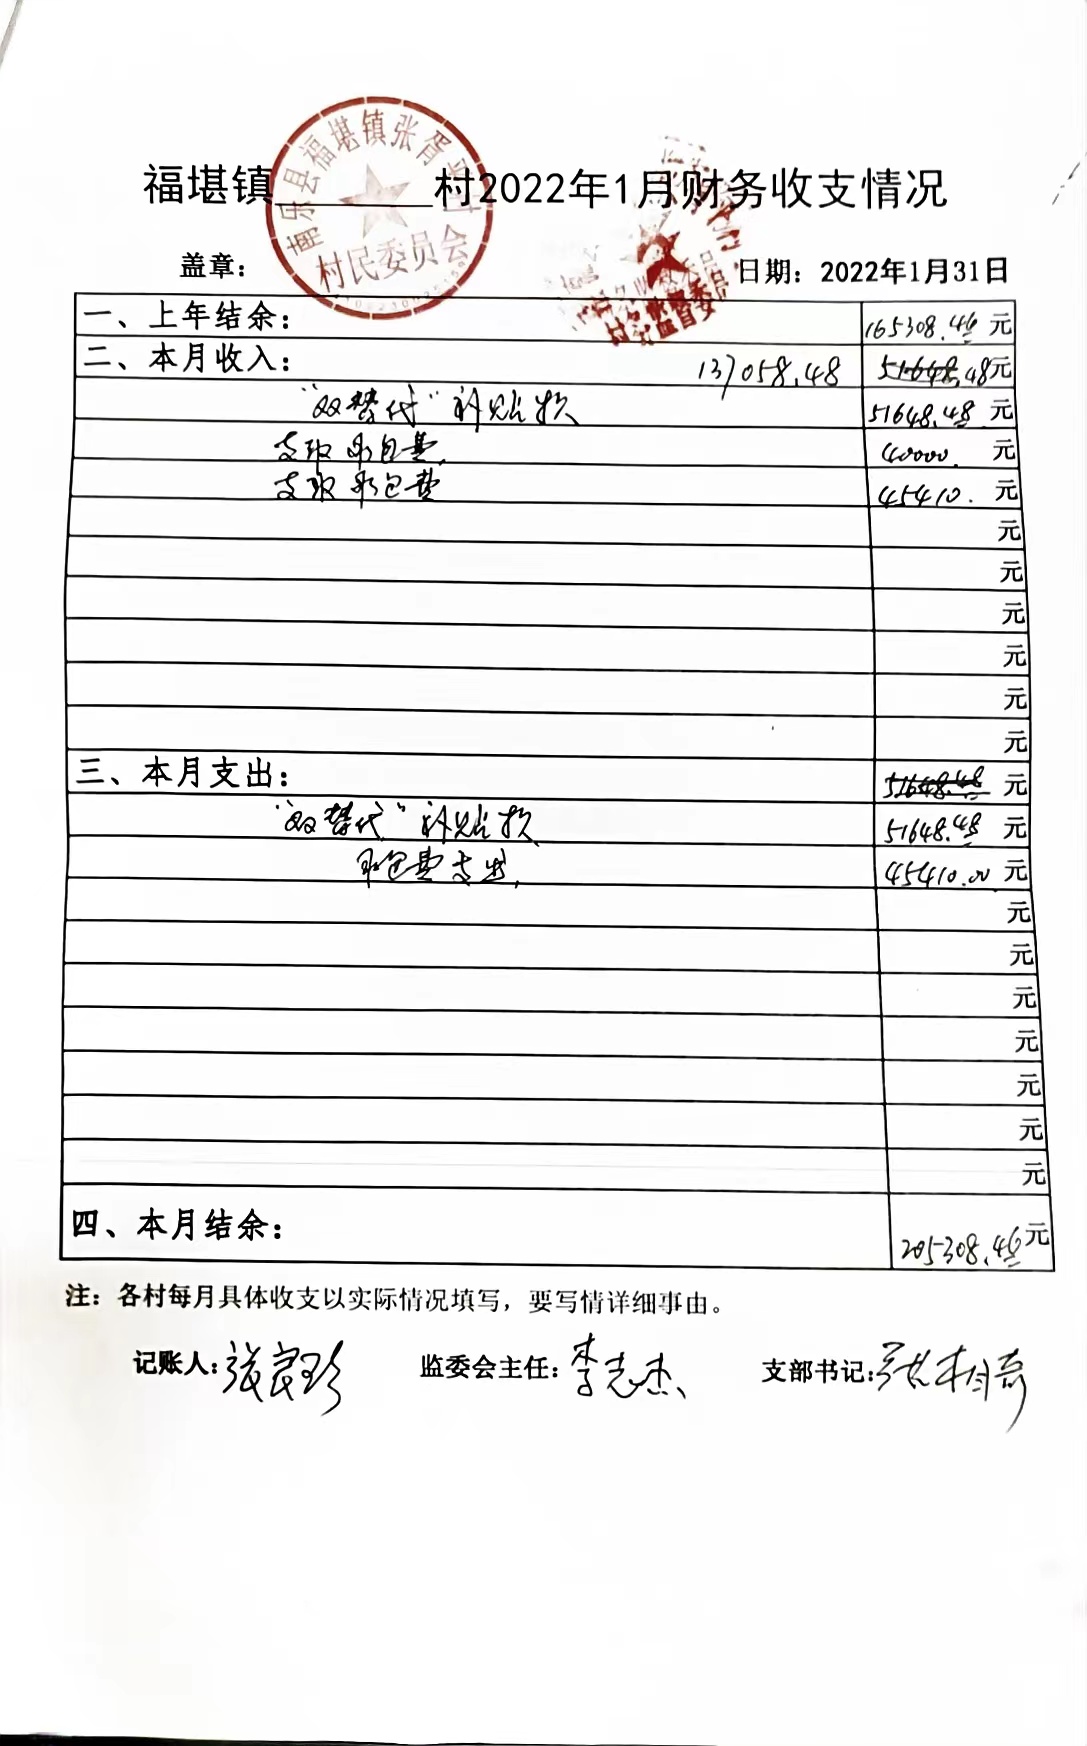 福堪镇 村2022年1月财务收支情况
南乐县福堪镇张胥
村民委员会
盖章:
日期: 2022年1月31日
一、上年结余: 165308.46 元
二、本月收入: 137058.48 51648.48元
"双替代"补贴款 51648.48 元
支取承包费 40000. 元
支取承包费 45410. 元
元
元
元
元
元
元
三、本月支出: 51648.48 元
"双替代"补贴款 51648.48 元
承包费支出 45410.00 元
元
元
元
元
元
元
元
四、本月结余: 205308.46元
注: 各村每月具体收支以实际情况填写,要写情详细事由。
记账人: 张良珍 监委会主任: 李志杰 支部书记: